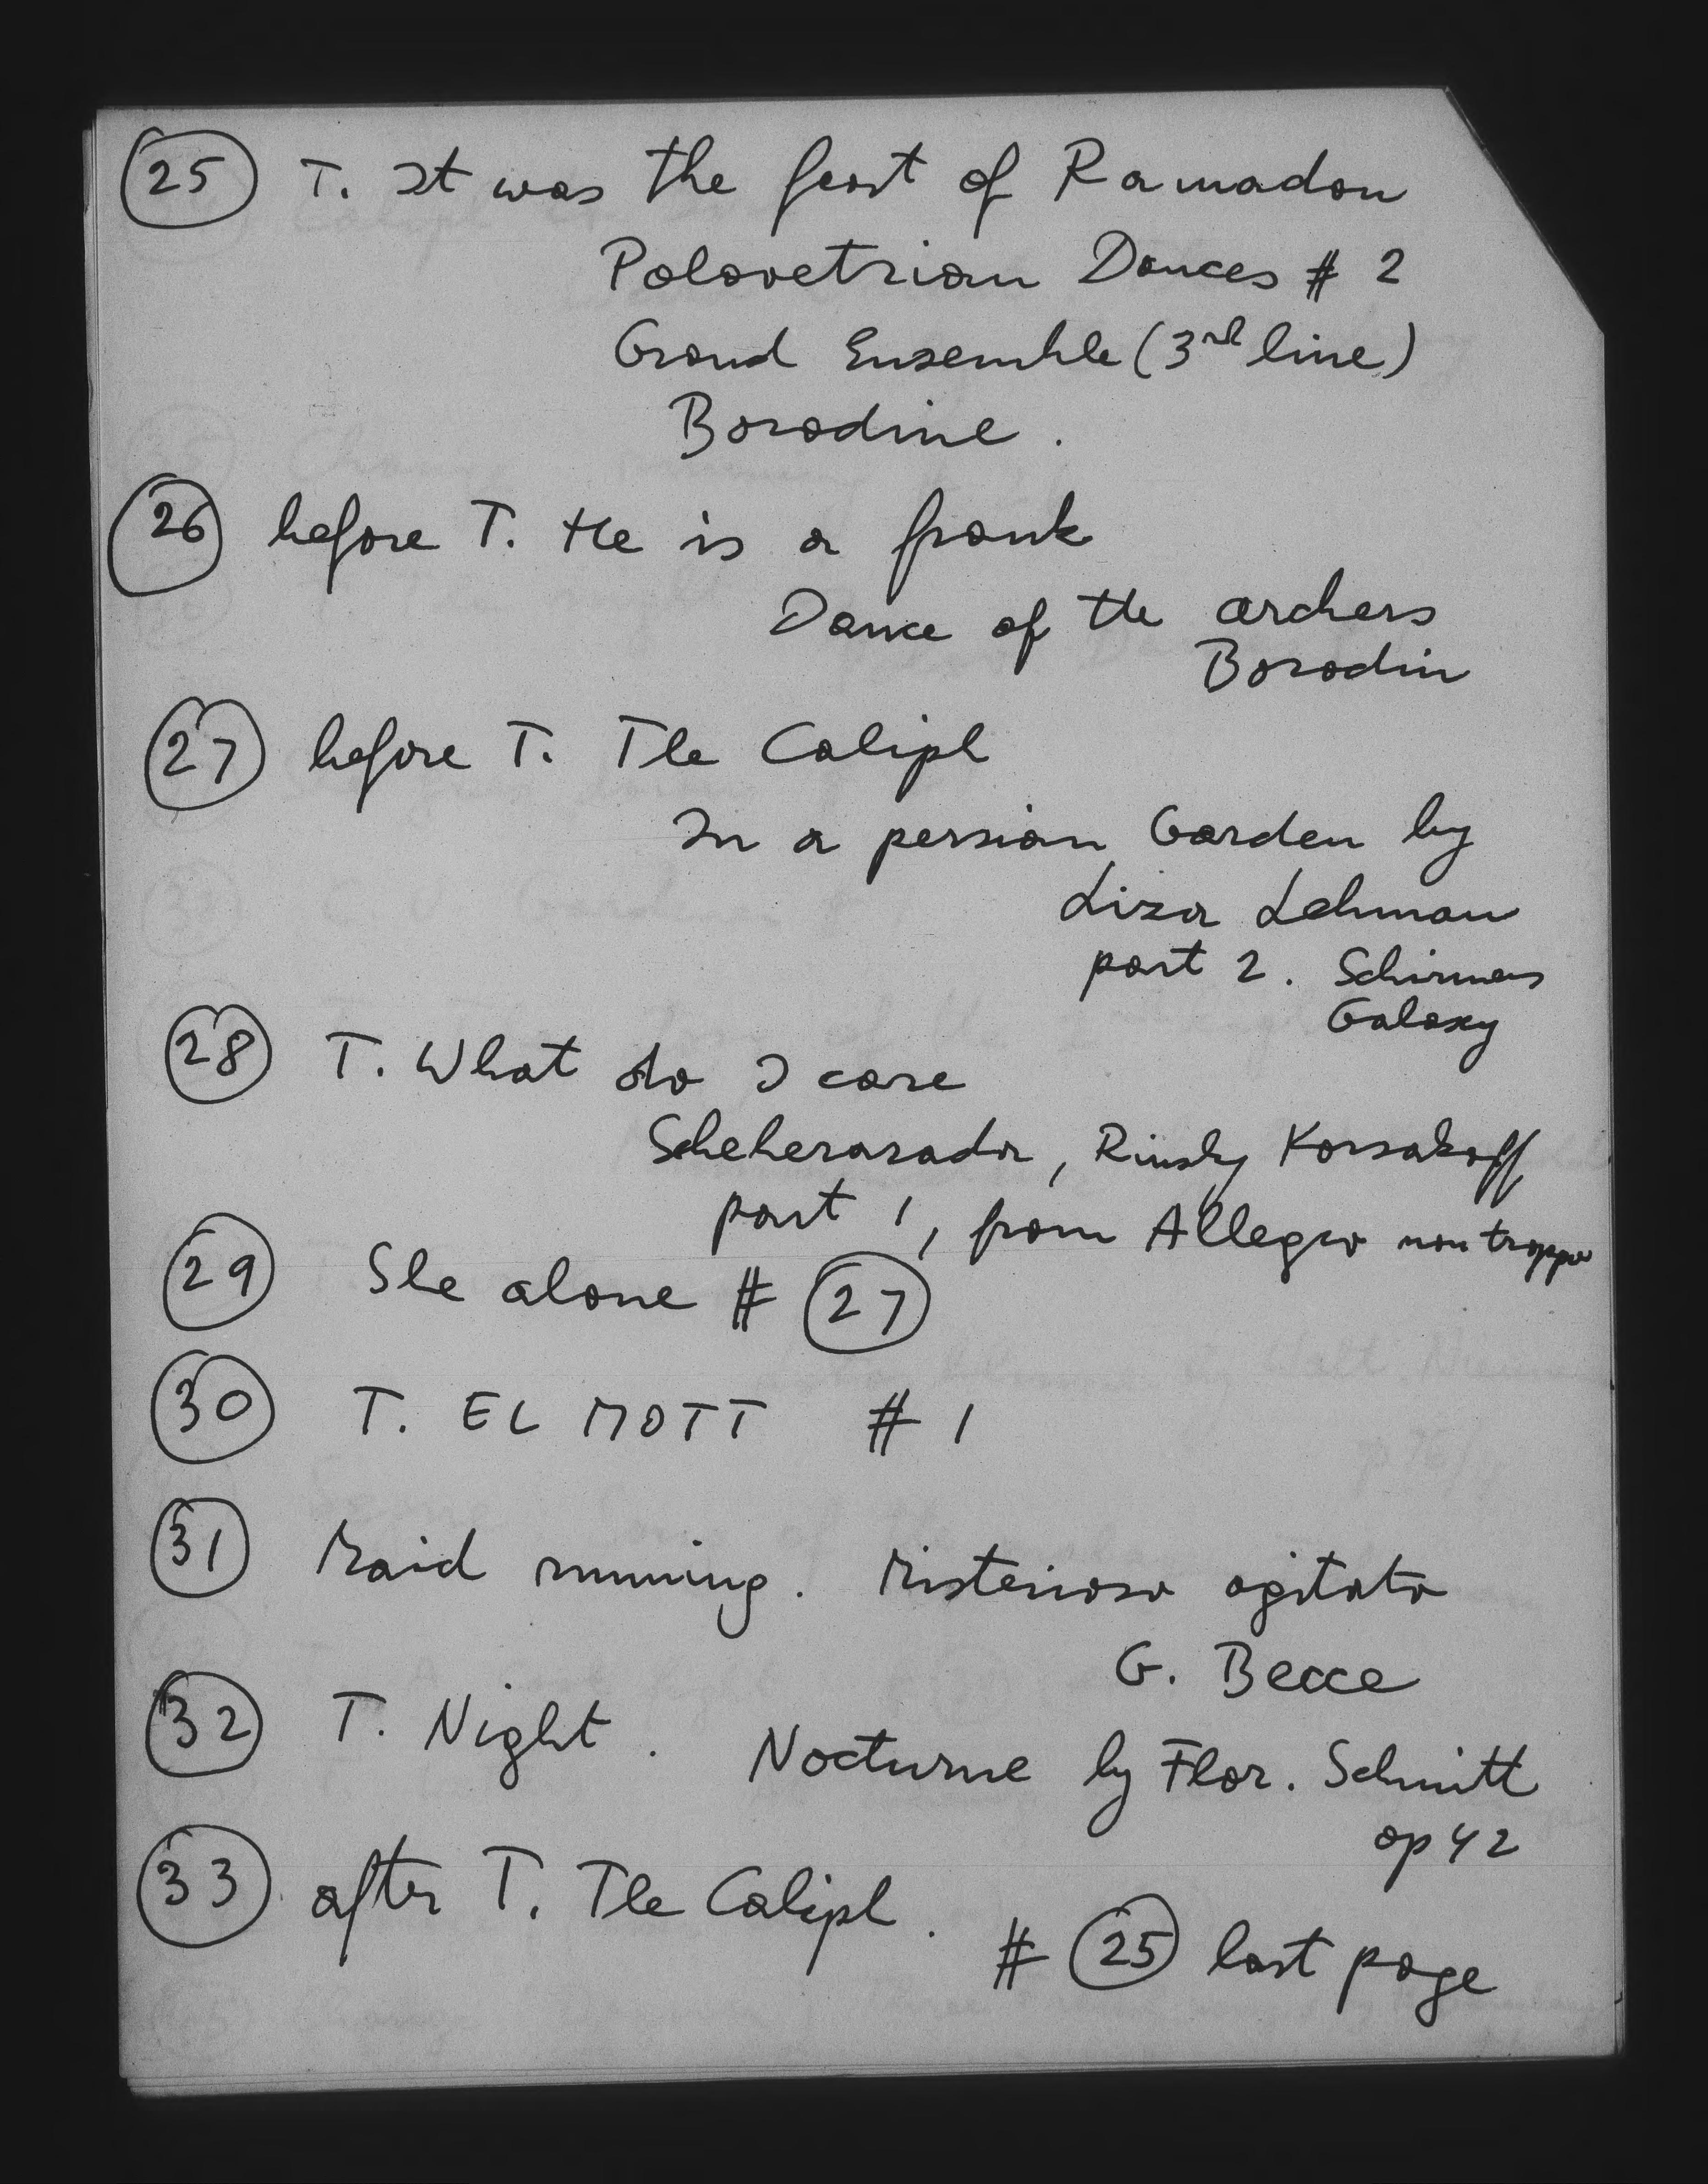 25 T. It was the feast of Ramadan
Polovetzian Dances # 2
Grand Ensemble (3rd line)
Borodine.
26 before T. He is a frank
Dance of the archers
Borodin
27 before T. The Caliph
In a persian Garden by
Liza Lehman
part 2. Schirmers
Galaxy
28 T. What do I care
Scheherazada, Rimsky Korsakoff
part 1, from Allegro non troppo
29 She alone # 27
30 T. EL MOTT # 1
31 Maid running. Misterioso agitato
G. Becce
32 T. Night. Nocturne by Flor. Schmitt
op 42
33 after T. The Caliph.
# 25 last page